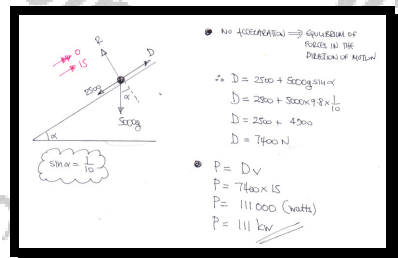 R
D
0
15
2500
α
5000g
α
sin α = 1/10
• NO ACCELERATION ⟹ EQUILIBRIUM OF
FORCES IN THE
DIRECTION OF MOTION
∴ D = 2500 + 5000g sin α
D = 2500 + 5000×9.8×1/10
D = 2500 + 4900
D = 7400 N
• P = Dv
P = 7400×15
P = 111000 (watts)
P = 111 kW